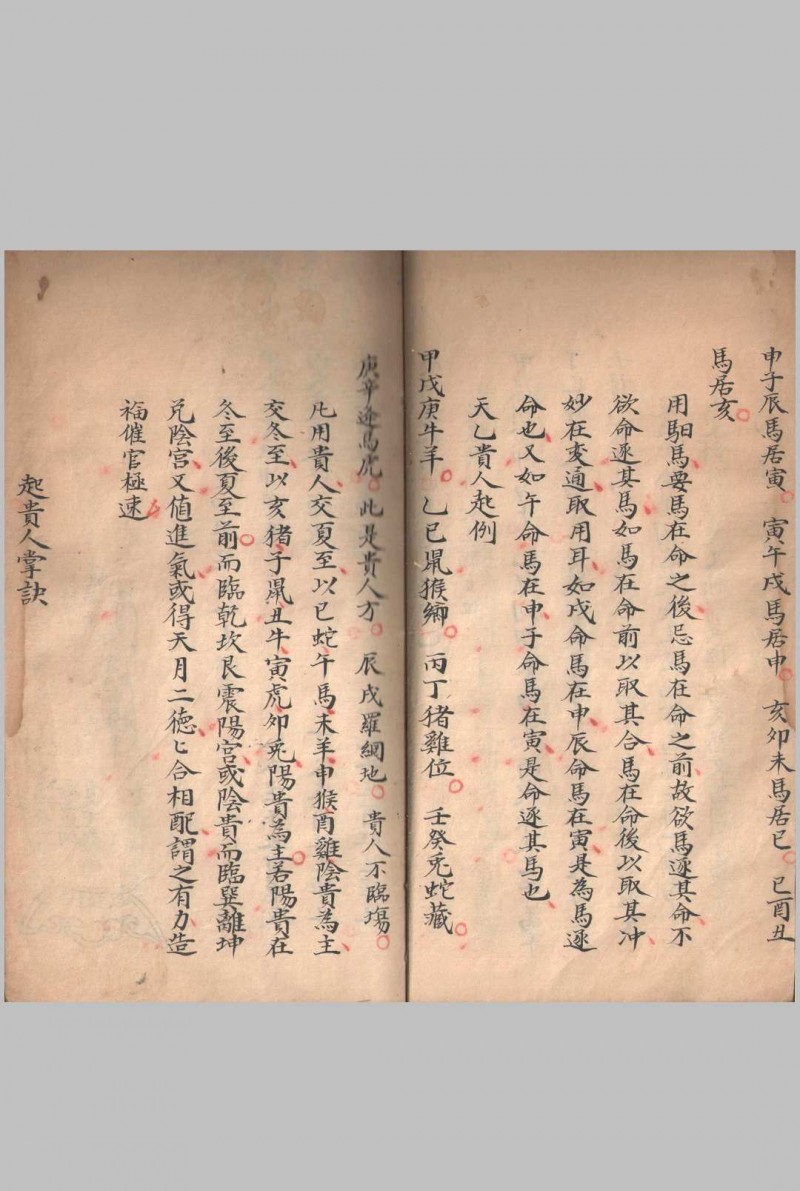 申子辰馬居寅。寅午戌馬居申。亥卯未馬居巳。巳酉丑
馬居亥。
用馹馬、要馬在命之後、忌馬在命之前、故欲馬逐其命、不
欲命逐其馬、如馬在命前以取其合、馬在命後以取其冲、
妙在変通、取用耳、如戌命馬在申、辰命馬在寅、是為馬逐
命也、又如午命馬在申、子命馬在寅、是命逐其馬也、
天乙貴人起例
甲戊庚牛羊。乙巳鼠猴鄉。丙丁猪雞位。壬癸兎蛇藏。
庚辛逢馬虎。此是貴人方。辰戌羅網地。貴人不臨塲。
凡用貴人、交夏至、以巳蛇午馬未羊申猴酉雞陰貴為主、
交冬至、以亥猪子鼠丑牛寅虎卯兎、陽貴為主。若陽貴在
冬至後夏至前。而臨乾坎艮震陽宮、或陰貴而臨巽離坤
兌陰宮、又值進氣、或得天月二德、匕合相配、謂之有力、造
福催官極速。
起貴人掌訣